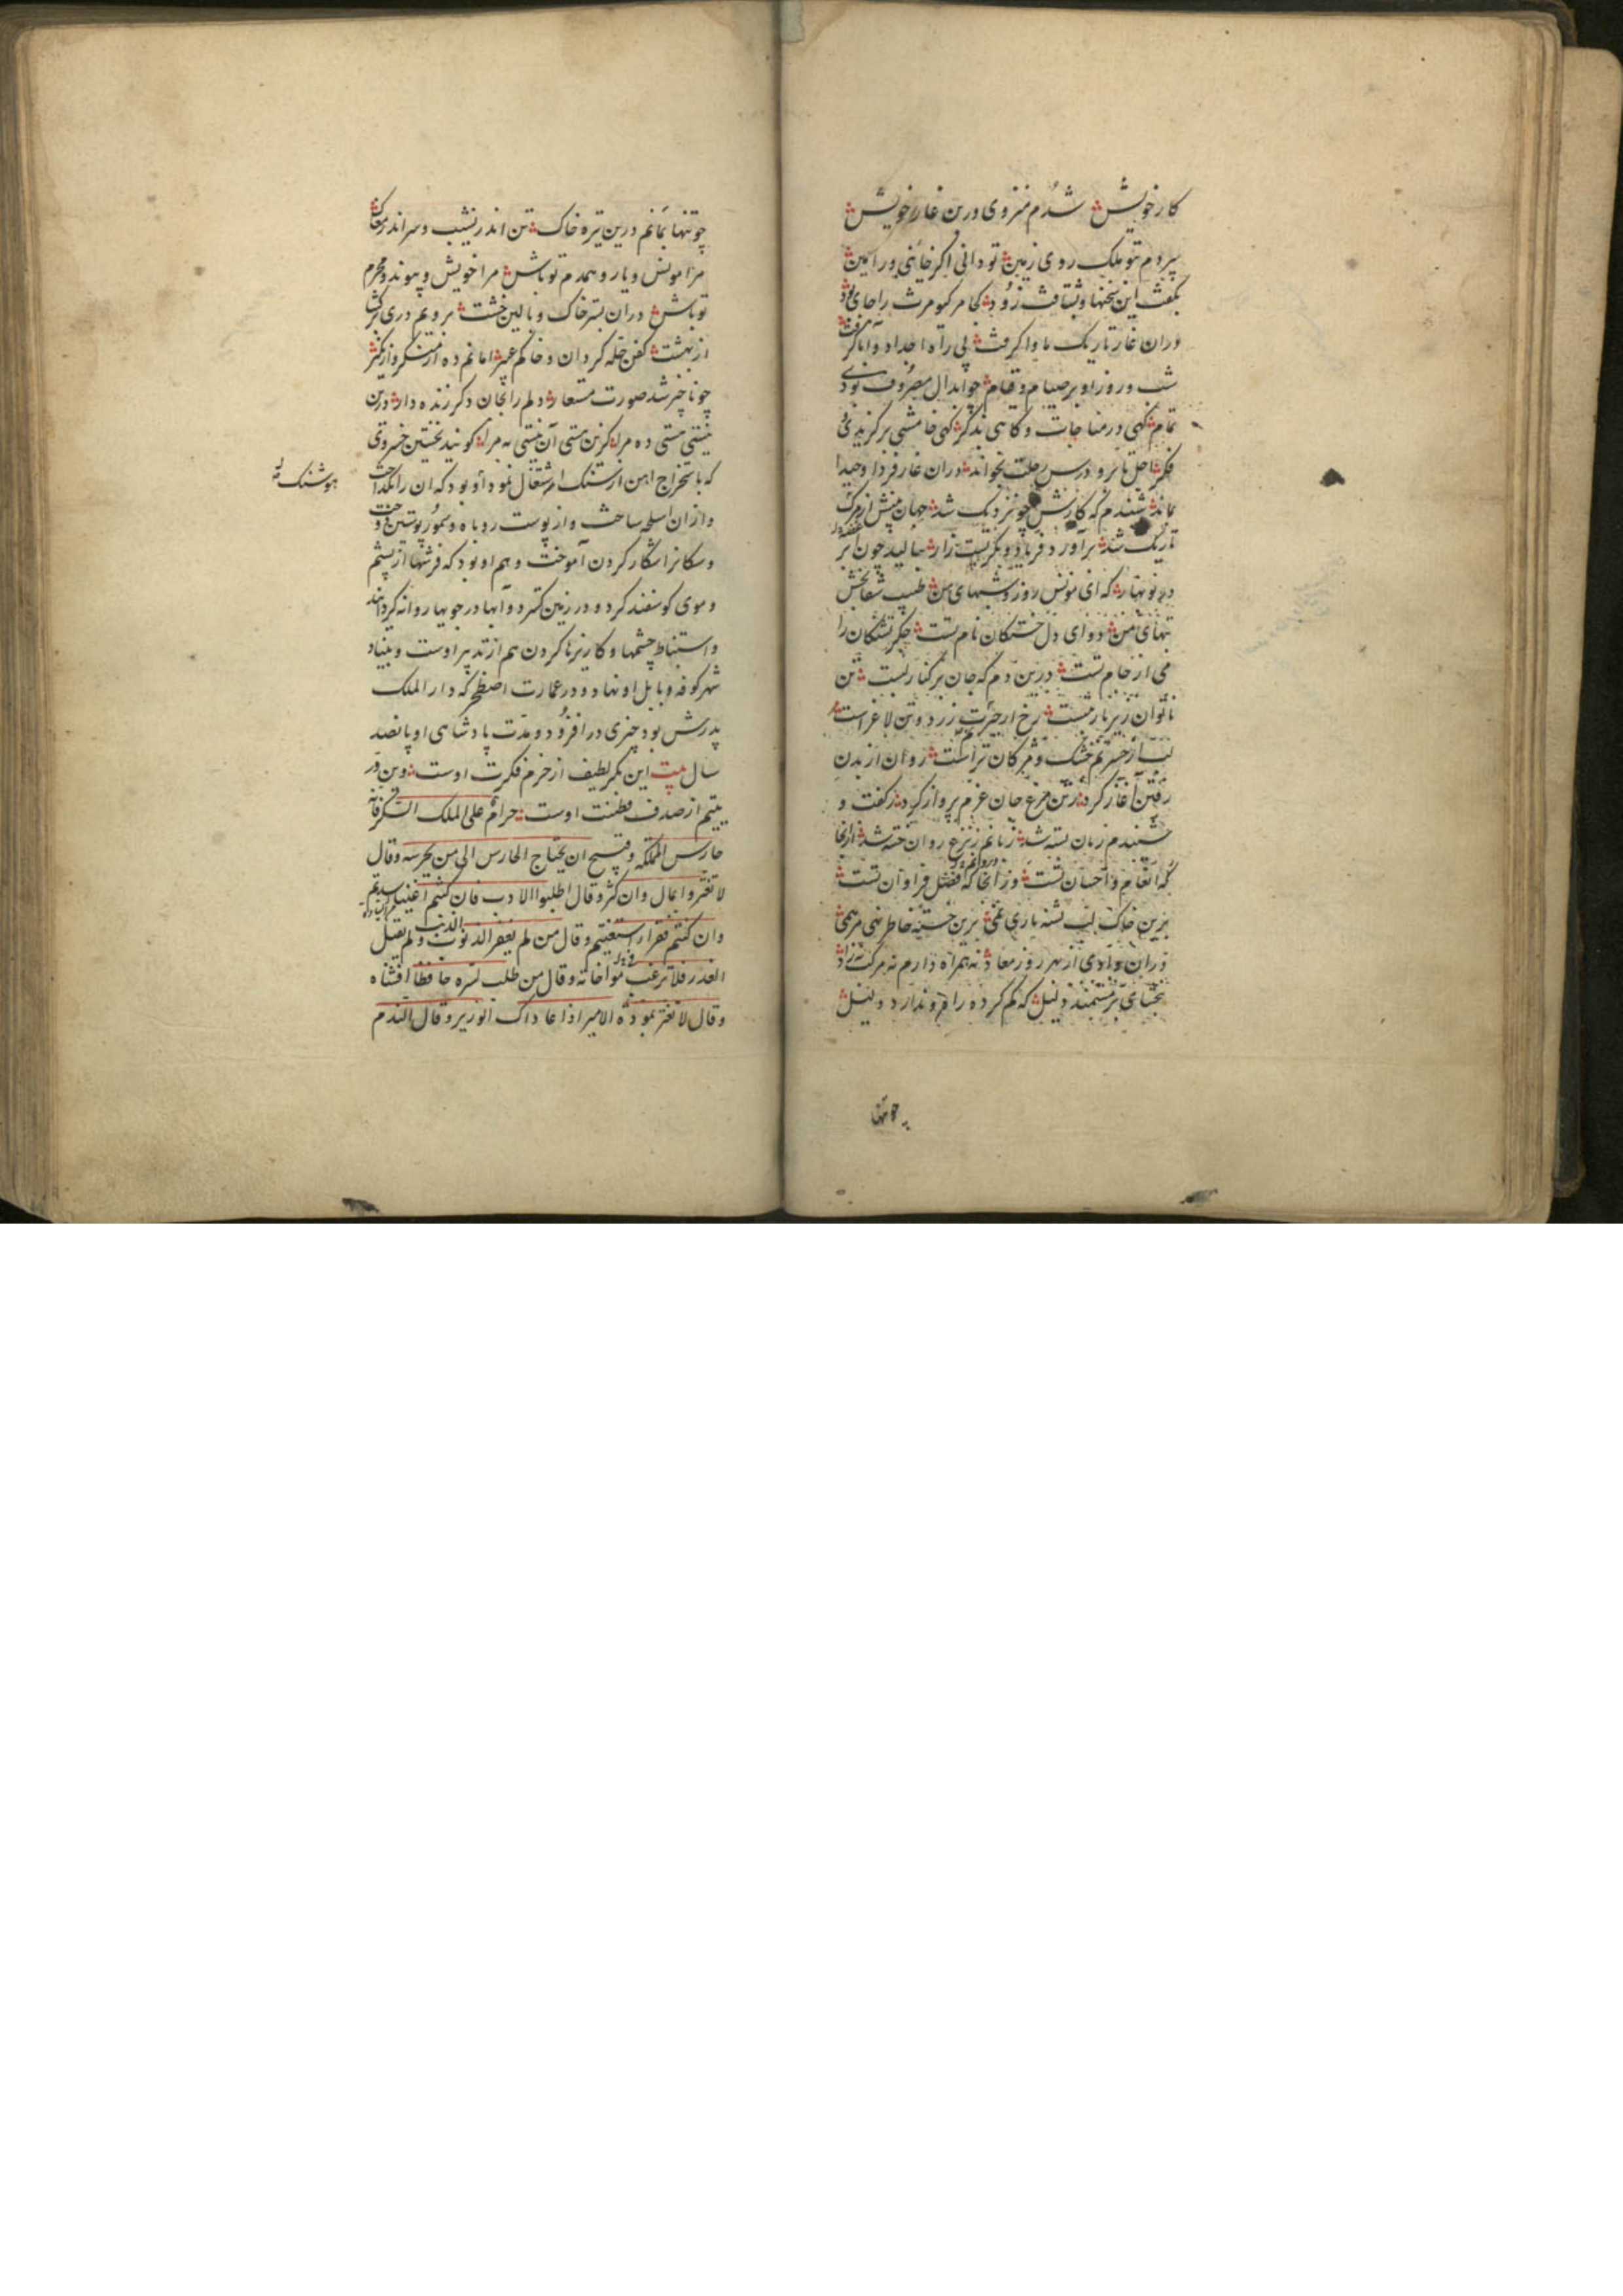 کار خویش شدم منزوی درین غار خویش
سپردم بتو ملک روی زمین تو دانی اکر خائنی ور امین
بکفت این سخنها و بشتافت زود کجا مر کیومرث را جای بود
دران غار تاریک ماوا کرفت پی راه اجداد و آبا کرفت
شب و روز او بر صیام و قیام چو ابدال مصروف بودی
تمام کهی در مناجات و کاهی بذکر کهی خامشی برکزیدی
فکر اجل تا برو درس رحلت بخواند دران غار فردا وحیدا
بماند شنیدم که کارش چو نزدیک شد جهان پیش از مرک
تاریک شد برآورد فریاد و بکریست زار بنالید چون ابر
در نوبهار که ای مونس روز و شبهای من طبیب شفابخش
تبهای من دوای دل خستکان نام تست جکر تشنکان را
می از جام تست درین دم که جان بر کنار لبست تن
ناتوان زیر بار رخ از حیرت زرد و تن لاغر است
لب از حسرتم خشک و مژکان تر است روان از بدن
رفتن آغاز کرد ز تن مرغ جان عزم پرواز کرد ز کفت و
شنیدم زبان بسته شد ز بانم ز نزع روان خسته شد ازانجا
که انعام و احسان تست وز انجا که فضل فراوان تست
برین خاک لب تشنه باری نمی برین خسته خاطر نهی مرهمی
دران وادی از بهر روز معاد نه همراه دارم نه مرکب نه زاد
ببخشای بر مستمند ذلیل که کم کرده راه و ندارد دلیل
چو تنها
چو تنها بمانم درین تیره خاک تن اندر نشیب و سر اندر مغاک
مرا مونس و یار و همدم تو باش مرا خویش و پیوند و محرم
تو باش دران بستر خاک و بالین خشت برویم دری برکشا
از بهشت کفن حله کردان و خاکم عبیر امانم ده از منکر و از نکیر
چو ناچیز شد صورت مستعار دلم را بجان دکر زنده دار درین
نیستی هستی ده مرا کزین هستی آن نیستی به مرا کویند نخستین خسروی
که باستخراج اهن از سنک اشتغال نمود او بود که ان را بکداخت
هوشنک
وازان اسلحه ساخت و از پوست روباه و سمور پوستین دوخت
و سکانرا شکار کردن آموخت و هم او بود که فرشها از پشم
و موی کوسفند کرد و در زمین کسترد و آبها در جویها روانه کردانید
و استنباط چشمها و کاریزها کردن هم از تدبیر اوست و بنیاد
شهر کوفه و بابل او نهاد و در عمارت اصطخر که دار الملک
پدرش بود چیزی در افزود و مدت پادشاهی او پانصد
سال بیت این بکر لطیف از حرم فکرت اوست وین در
یتیم از صدف فطنت اوست حرام علی الملک السکر فانه
حارس المملکه و قبیح ان یحتاج الحارس الی من یحرسه و قال
لا تغتروا بمال وان کثر و قال اطلبوا الادب فان کنتم اغنیا سدتم
وان کنتم فقرا استغنیتم و قال من لم یغفر الذنوب ولم یقبل
العذر فلا ترغب فی مواخاته و قال من طلب لسره حافظا افشاه
و قال لا تغتر بمودة الامیر اذا عاداک الوزیر و قال الندم